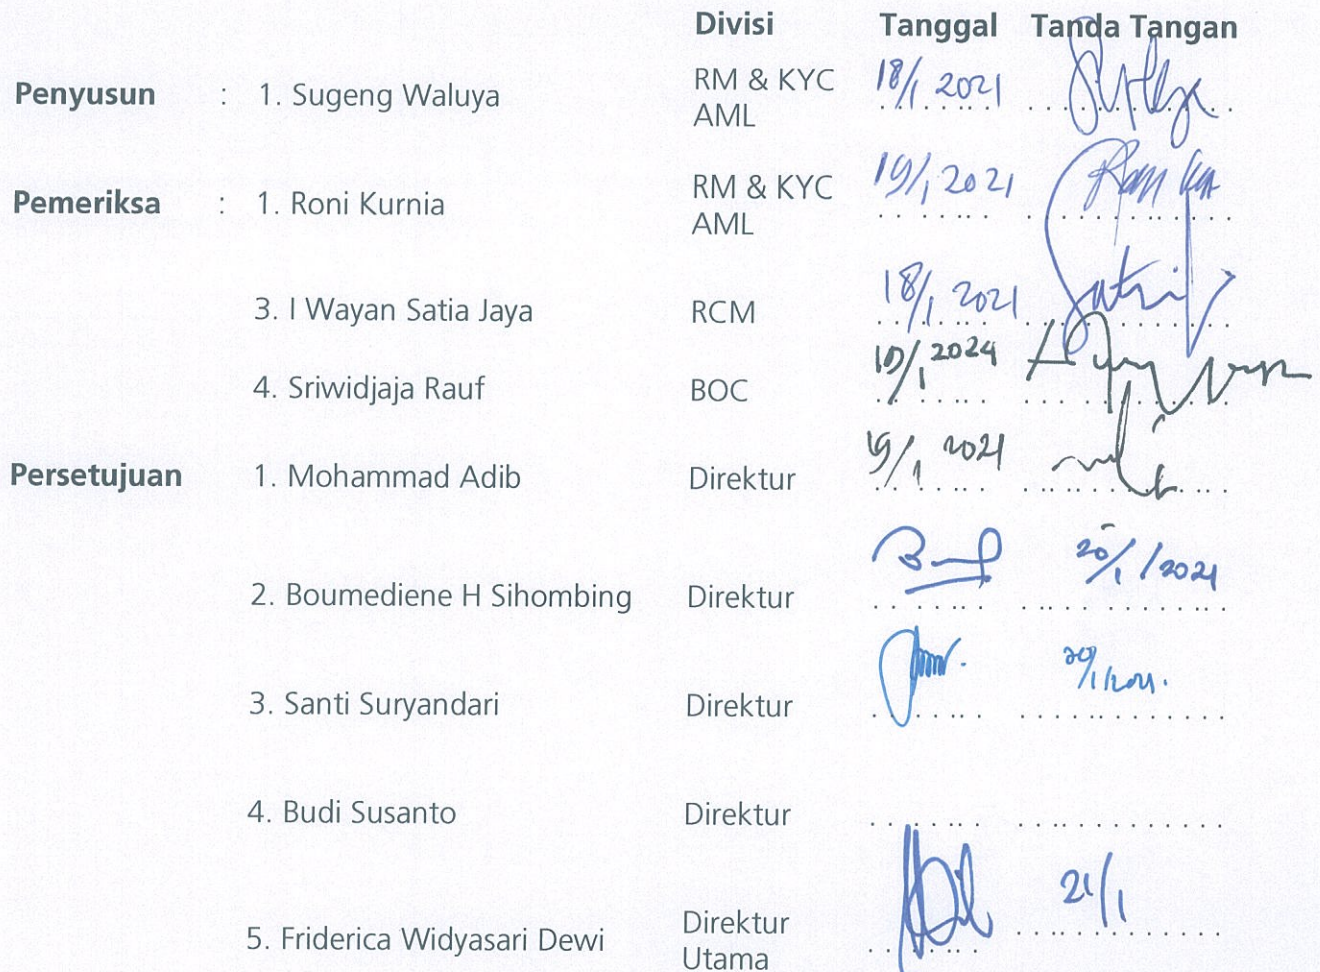 Divisi Tanggal Tanda Tangan
Penyusun : 1. Sugeng Waluya RM & KYC 18/1 2021
AML
Pemeriksa : 1. Roni Kurnia RM & KYC 19/1 2021
AML
3. I Wayan Satia Jaya RCM 18/1 2021
4. Sriwidjaja Rauf BOC
Persetujuan 1. Mohammad Adib Direktur 19/1 2021
2. Boumediene H Sihombing Direktur 20/1/2021
3. Santi Suryandari Direktur
4. Budi Susanto Direktur
5. Friderica Widyasari Dewi Direktur 21/1
Utama